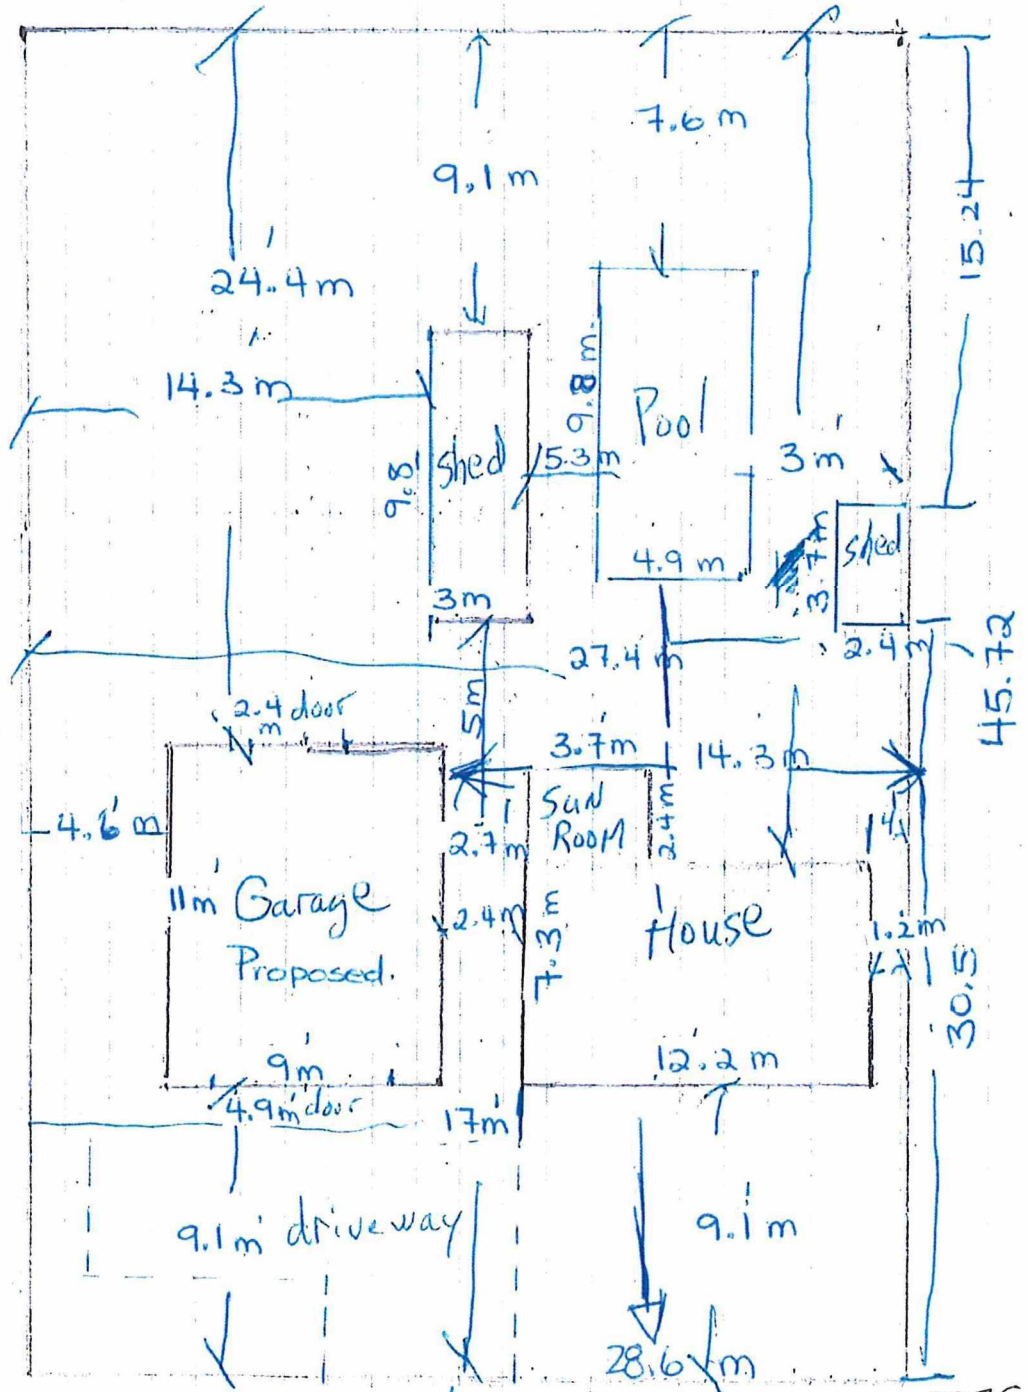 7.6 m
9.1 m
15.24
24.4 m
14.3 m
9.8 m.
Pool
shed
5.3 m
3 m
9.8'
4.9 m
3.7 m
shed
3m
2.4 m
27.4 m
45.72
5m
2.4 door
m
3.7m
14.3m
Sun
Room
2.4m
4.6 m
2.7m
11m Garage
Proposed.
2.4m
7.3 m
House
1.2m
30.5
9m
12.2 m
4.9m door
17m
9.1m driveway
9.1m
28.6 m